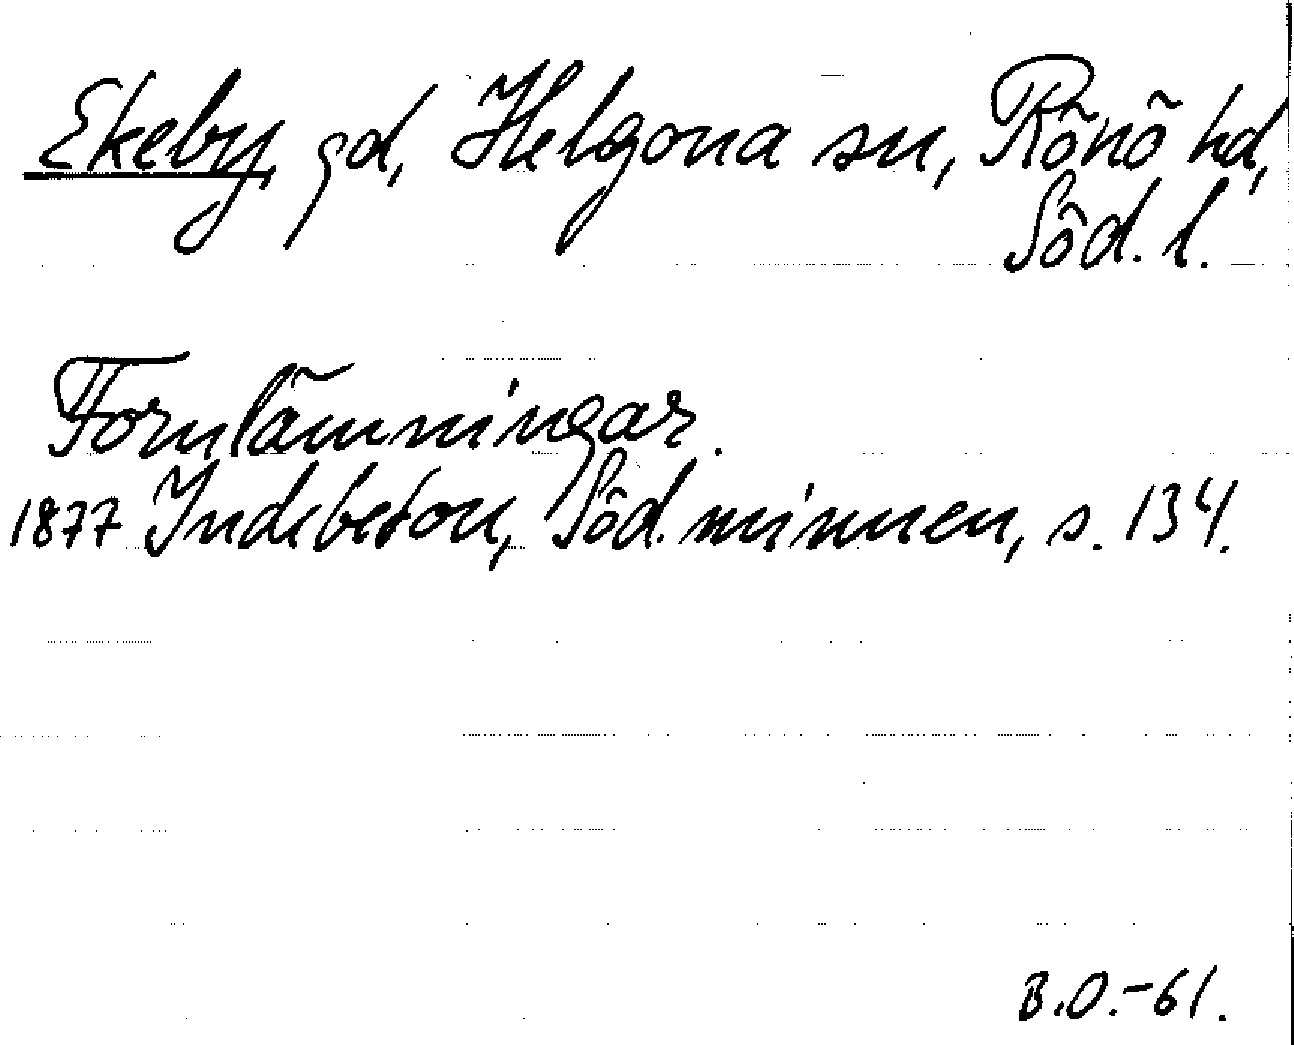 Ekeby, gd, Helgona sn, Rönö hd,
Söd. l.
Fornlämningar.
1877 Indebetou, Söd. minnen, s. 134.
B.O.-61.